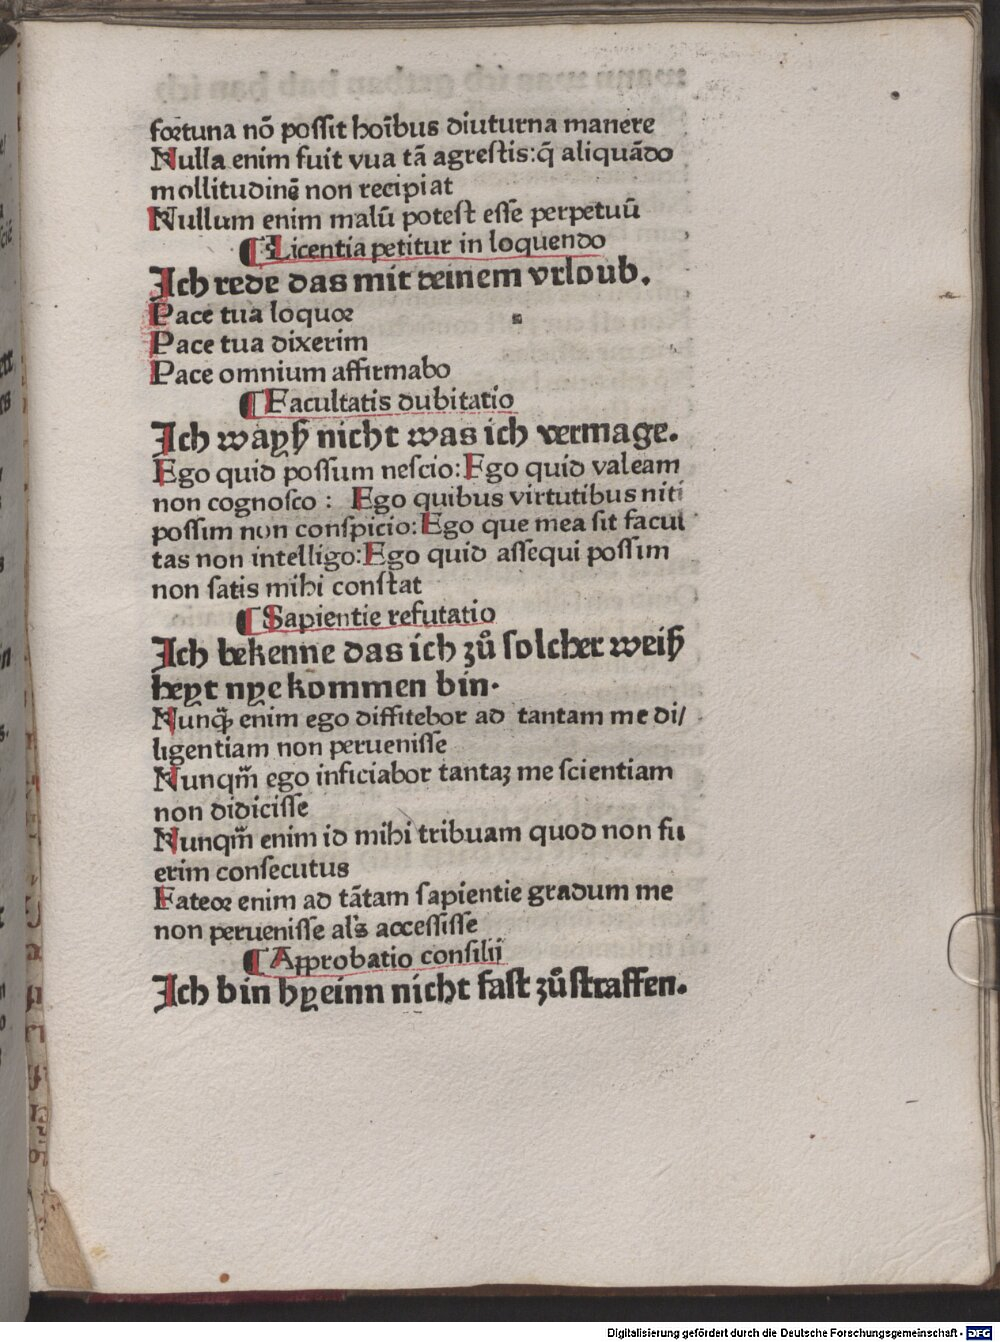 fortuna nō poſſit hoībus diuturna manere
Nulla enim fuit vua tā agreſtis:q̄ aliquādo
mollitudinē non recipiat
Nullum enim malū poteſt eſſe perpetuū
¶ Licentia petitur in loquendo
Ich rede das mit deinem vrloub.
Pace tua loquor
Pace tua dixerim
Pace omnium affirmabo
¶ Facultatis dubitatio
Ich wayß nicht was ich vermage.
Ego quid poſſum neſcio: Ego quid valeam
non cognoſco : Ego quibus virtutibus niti
poſſim non conſpicio: Ego que mea ſit facul
tas non intelligo: Ego quid aſſequi poſſim
non ſatis mihi conſtat
¶ Sapientie refutatio
Ich bekenne das ich zů ſolcher weiß
heyt nye kommen bin.
Nunq̄ enim ego diffitebor ad tantam me di/
ligentiam non perueniſſe
Nunqm̄ ego inficiabor tantaꝫ me ſcientiam
non didiciſſe
Nunqm̄ enim id mihi tribuam quod non fu
erim conſecutus
Fateor enim ad tātam ſapientie gradum me
non perueniſſe al's acceſſiſſe
¶ Approbatio conſilii
Ich bin hyeinn nicht faſt zů ſtraffen.
Digitalisierung gefördert durch die Deutsche Forschungsgemeinschaft - DFG